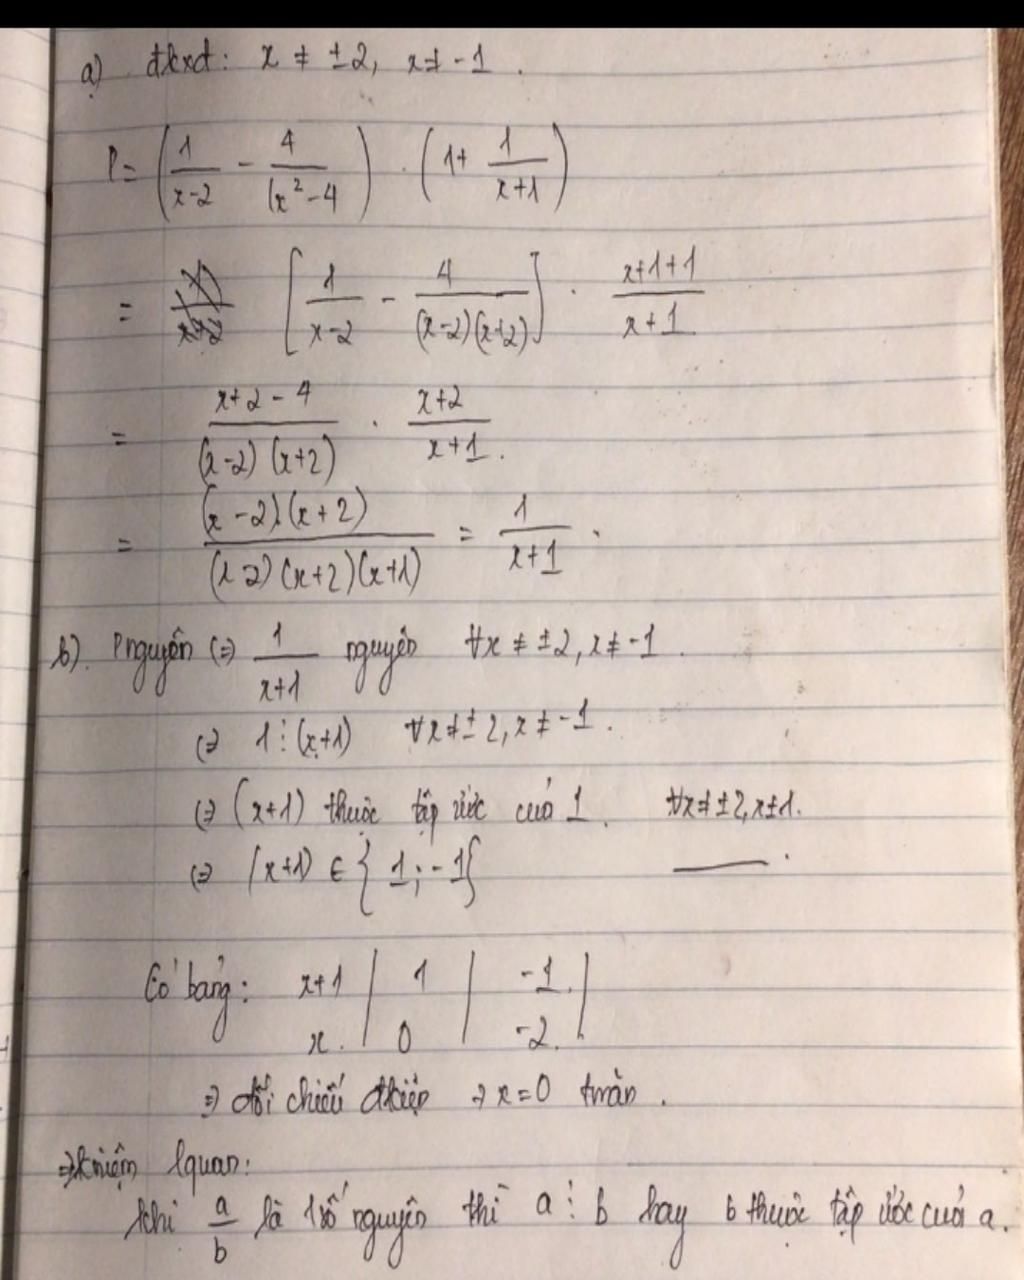 a) đkxđ: x ≠ ±2, x ≠ -1.
P = (1/(x-2) - 4/(x²-4)) . (1 + 1/(x+1))
= [1/(x-2) - 4/((x-2)(x+2))] . (x+1+1)/(x+1)
= (x+2-4)/((x-2)(x+2)) . (x+2)/(x+1).
= (x-2).(x+2)/((x-2)(x+2)(x+1)) = 1/(x+1).
b). P nguyên (=) 1/(x+1) nguyên ∀x ≠ ±2, x ≠ -1.
(=) 1 ⋮ (x+1) ∀x ≠ ± 2, x ≠ -1.
(=) (x+1) thuộc tập ước của 1. ∀x ≠ ±2, x ≠ 1.
(=) (x+1) ∈ { 1; -1 } ——.
Có bảng: x+1 | 1 | -1. |
x. | 0 | -2. |
=) đối chiếu đkiện → x = 0 tmãn.
=) Kniệm lquan:
khi a/b là 1 số nguyên thì a ⋮ b hay b thuộc tập ước của a.